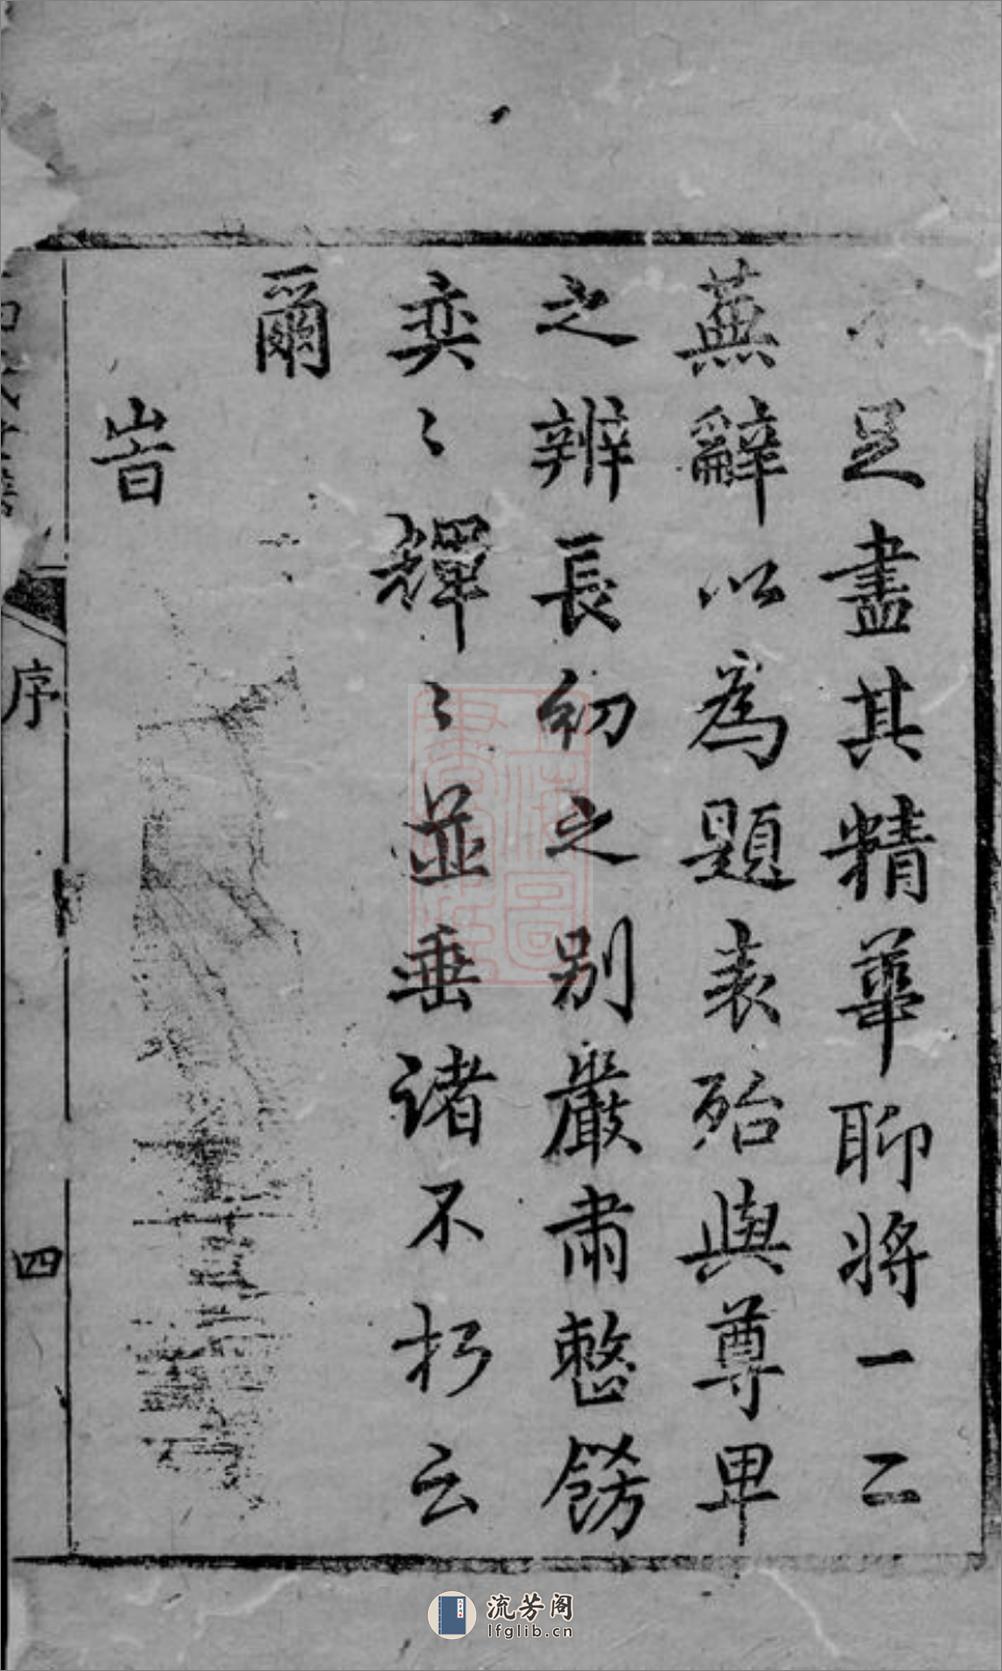 足盡其精華聊將一二
蕪辭以為題表殆與尊卑
之辨長幼之別嚴肅整飭
奕〻輝〻並垂諸不朽云
爾
旹
序
四
流芳阁
lfglib.cn